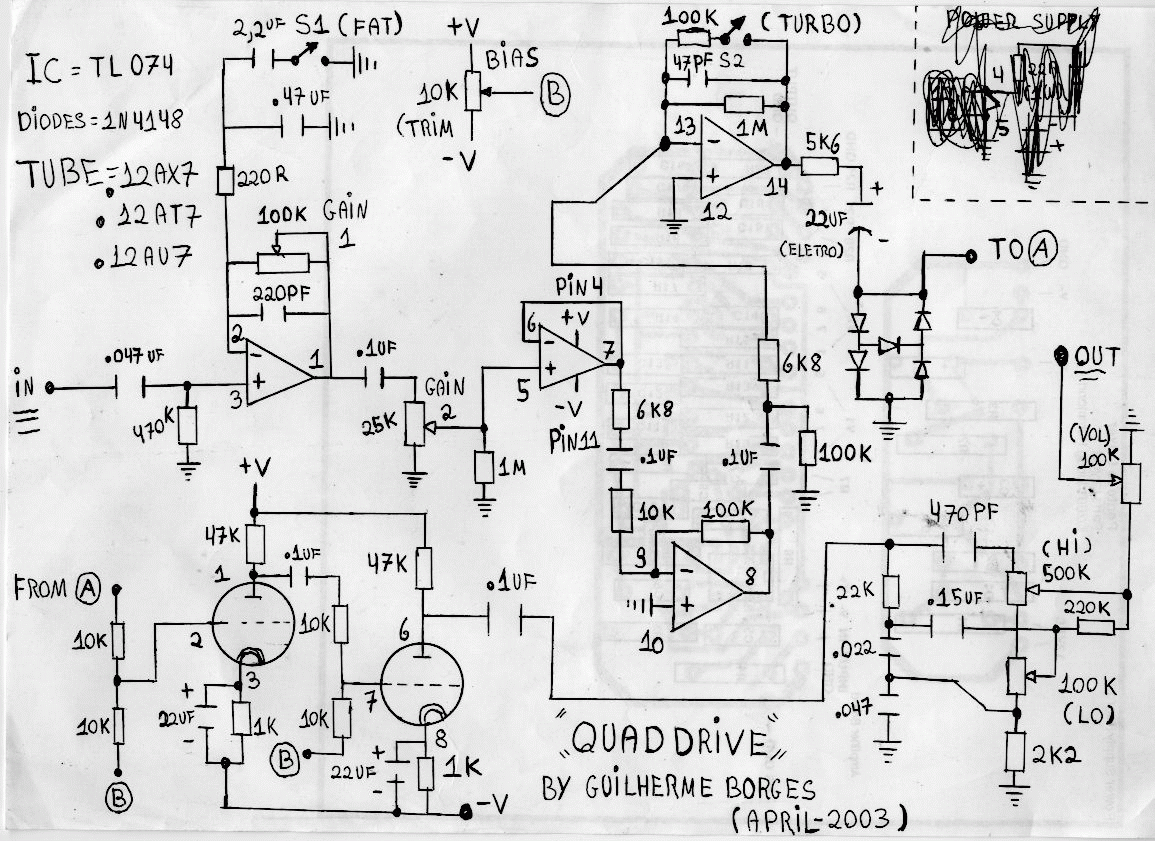 2,2UF S1 (FAT)
IC = TL074
DIODES = 1N4148
TUBE = 12AX7
. 12AT7
. 12AU7
.47UF
220R
100K GAIN
1
220PF
2
3
1
iN
.047UF
470K
.1UF
GAIN
2
25K
1M
+V
BIAS
10K
B
(TRIM
-V
PIN4
6
+V
5
7
-V
PIN11
6K8
.1UF
10K
100K
9
8
10
.1UF
100K
6K8
100K
(TURBO)
47PF S2
1M
13
12
14
5K6
+
22UF
(ELETRO)
-
TO A
POWER SUPPLY
4
5
+
OUT
(VOL)
100K
470PF
(Hi)
500K
.22K
.15UF
220K
.022
.047
100K
(LO)
2K2
+V
47K
1
.1UF
47K
FROM A
10K
2
10K
6
.1UF
3
7
10K
+
22UF
-
1K
10K
B
B
8
+
22UF
-
1K
-V
"QUADDRIVE"
BY GUILHERME BORGES
(APRIL-2003)